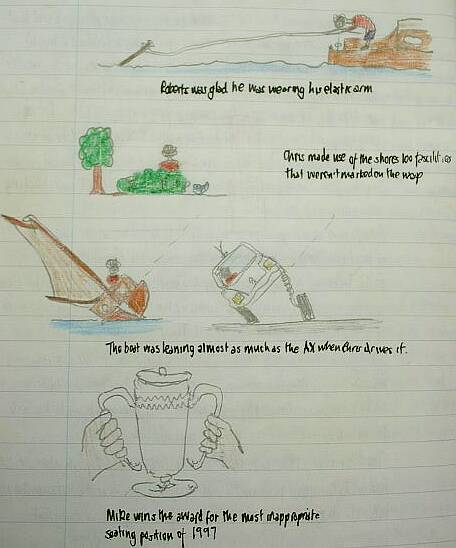 Roberts was glad he was wearing his elastic arm
Chris made use of the shores loo facilities
that weren't marked on the map
The boat was leaning almost as much as the AX when Chris drives it.
Mike wins the award for the most inappropriate
seating position of 1997